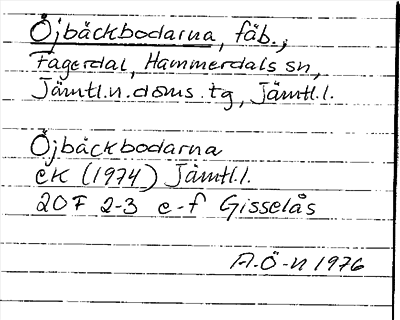 Öjbäckbodarna, fäb.,
Fagerdal, Hammerdals sn,
Jämtl.n.doms.tg, Jämtl.l.
Öjbäckbodarna
eK (1974) Jämtl.l.
20F 2-3 e-f Gisselås
A.Ö-n 1976